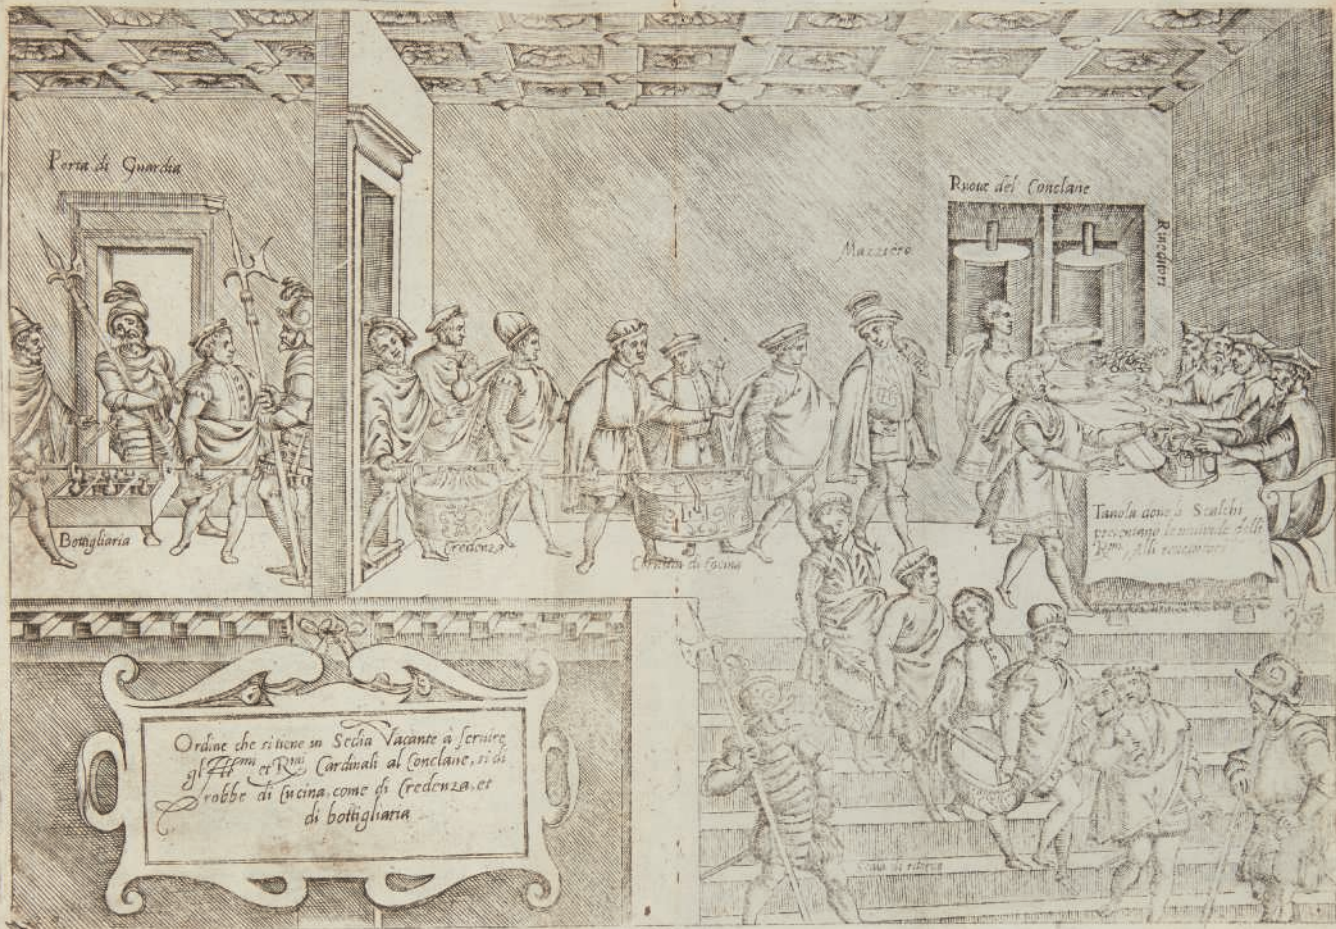 Porta di Guardia
Ruote del Conclaue
Mazziero
Riueditori
Bottigliaria
Credenza
di Cocina
Tauola doue li Scalchi
presentano le uiuande delli
R.mi, alli reueditori
Ordine che si tiene in Sedia Vacante à seruire
gl' Ill.mi et R.mi Cardinali al Conclaue, si di
robbe di Cucina, come di Credenza, et
di bottigliaria